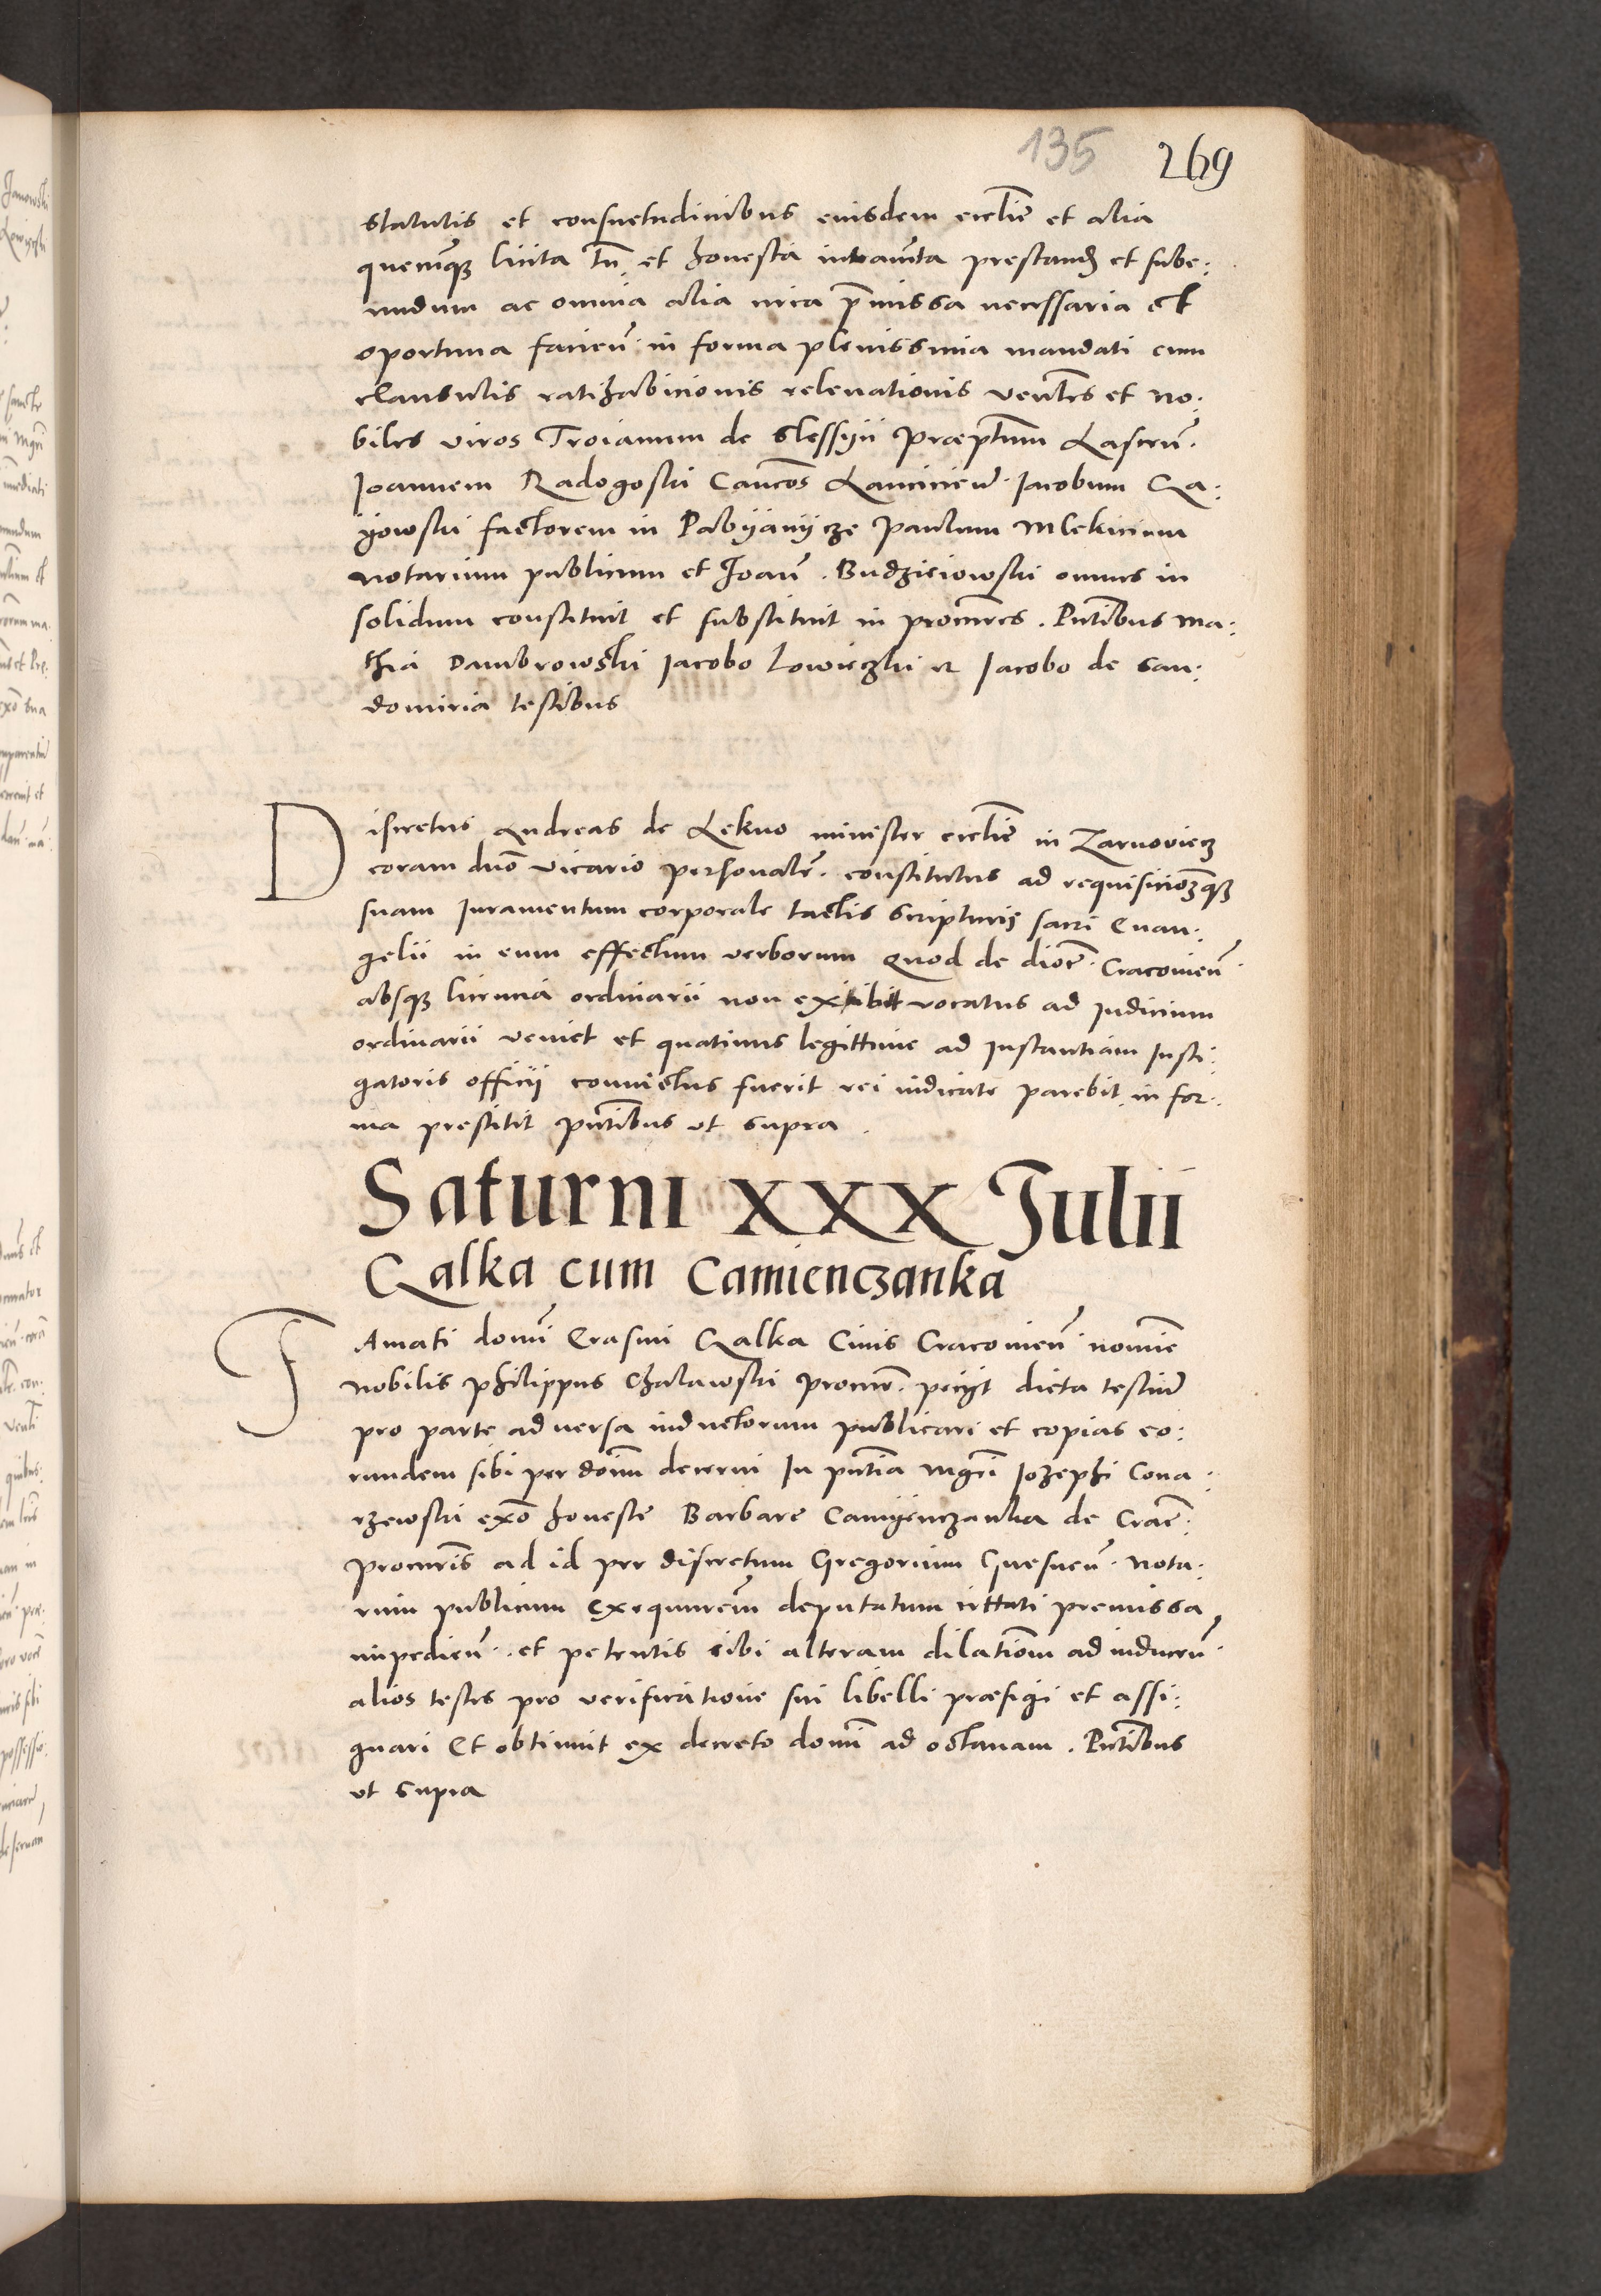 135 269
statutis et consuetudinibus eiusdem ecclie et alia
quecunqz licita tn et honesta iuramta prestand et sube:
undum ac omnia alia circa pmissa necessaria et
oportuna facien in forma plenissima mandati cum
clausulis ratihabicionis relevationis venles et no:
biles viros Troianum de Slessyn Praeptum Lascen.
Joannem Radogoski Cancos Lancicien. Jacobum Ga:
yowski factorem in Pabyanycze Paulum Mlekicium
notarium publicum et Joan. Budzieiowski omnes in
solidum constituit et substituit in procures. Pntibus Ma:
thia Dambrowski Jacobo Lowiczki et Jacobo de San:
domiria testibus
Discretus Andreas de Lekno minister ecclie in Zarnoviecz
coram dno vicario personalr. constitutus ad requisicionqz
suam Juramentum corporale tactis scripturis sacri Evan:
gelii in eum effectum verborum Quod de dioc. Cracovien.
absqz licencia ordinarii non exibit vocatus ad Judicium
ordinarii veniet et quatinus legittime ad Instantiam Insti:
gatoris officij convictus fuerit rei iudicate parebit in for:
ma prestitit pntibus ut supra.
Saturni XXX Julii
Galka cum Camienczanka
Famati domi Erasmi Galka Civis Cracovien nomine
nobilis Philippus Chalawski procur. pecyt dicta testium
pro parte adversa inductorum publicari et copias eo:
rundem sibi per doim decerni In pntia Mgri Jozephi Cona:
rzewski exo honeste Barbare Camyenczanka de Crac:
procuris ad id per discretum Gregorium Gnesnen. nota:
rium publicum exequurem deputatum cittati premissa
impedien. et petentis sibi alteram dilationm ad inducen
alios testes pro verificatione sui libelli praefigi et assi:
gnari Et obtinuit ex decreto domi ad octavam. Pntibus
ut supra